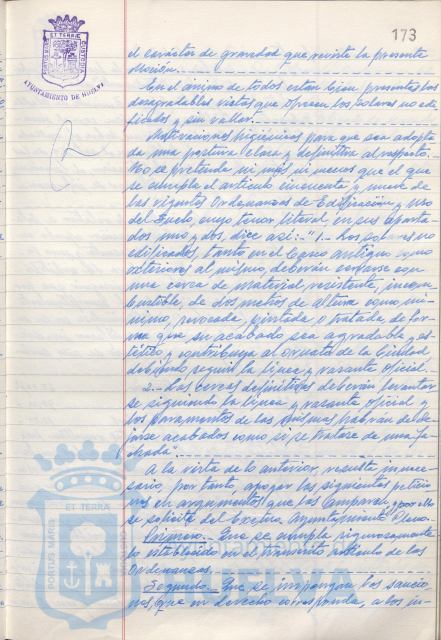 173
PORTUS MARIS ET TERRÆ CUSTODIA
AYUNTAMIENTO DE HUELVA
el carácter de gravedad que reviste la presente
Moción.
En el ánimo de todos están bien presentes las
desagradables vistas que ofrecen los solares no edi-
ficados y sin vallar.
Motivaciones higiénicas para que sea adopta-
da una postura clara y definitiva al respecto.
No se pretende ni más ni menos que el que
se cumpla el artículo cincuenta y nueve de
las vigentes Ordenanzas de Edificación y Uso
del Suelo, cuyo tenor literal en sus aparta-
dos uno y dos, dice así: "1.- Los solares no
edificados, tanto en el Casco antiguo como
exteriores al mismo, deberán cercarse con
una cerca de material resistente, incom-
bustible, de dos metros de altura como mí-
nimo, revocada, pintada o tratada de for-
ma que su acabado sea agradable y es-
tético y contribuya al ornato de la Ciudad
debiendo seguir la línea y rasante oficial.
2.- Las cercas definitivas deberán levantar-
se siguiendo la línea y rasante oficial y
los paramentos de las mismas habrán de de-
jarse acabados como si se tratase de una fa-
chada".
A la vista de lo anterior, resulta innece-
sario, por tanto, apoyar las siguientes peticio-
nes en argumentos que las amparen, y por ello
se solicita del Excmo. Ayuntamiento Pleno.
Primero.- Que se cumpla rigurosamente
lo establecido en el artículo de las
Ordenanzas.
Segundo.- Que se impongan las sancio-
nes, que en derecho corresponda, a los in-
PORTUS MARIS ET TERRÆ CUSTODIA
HUELVA